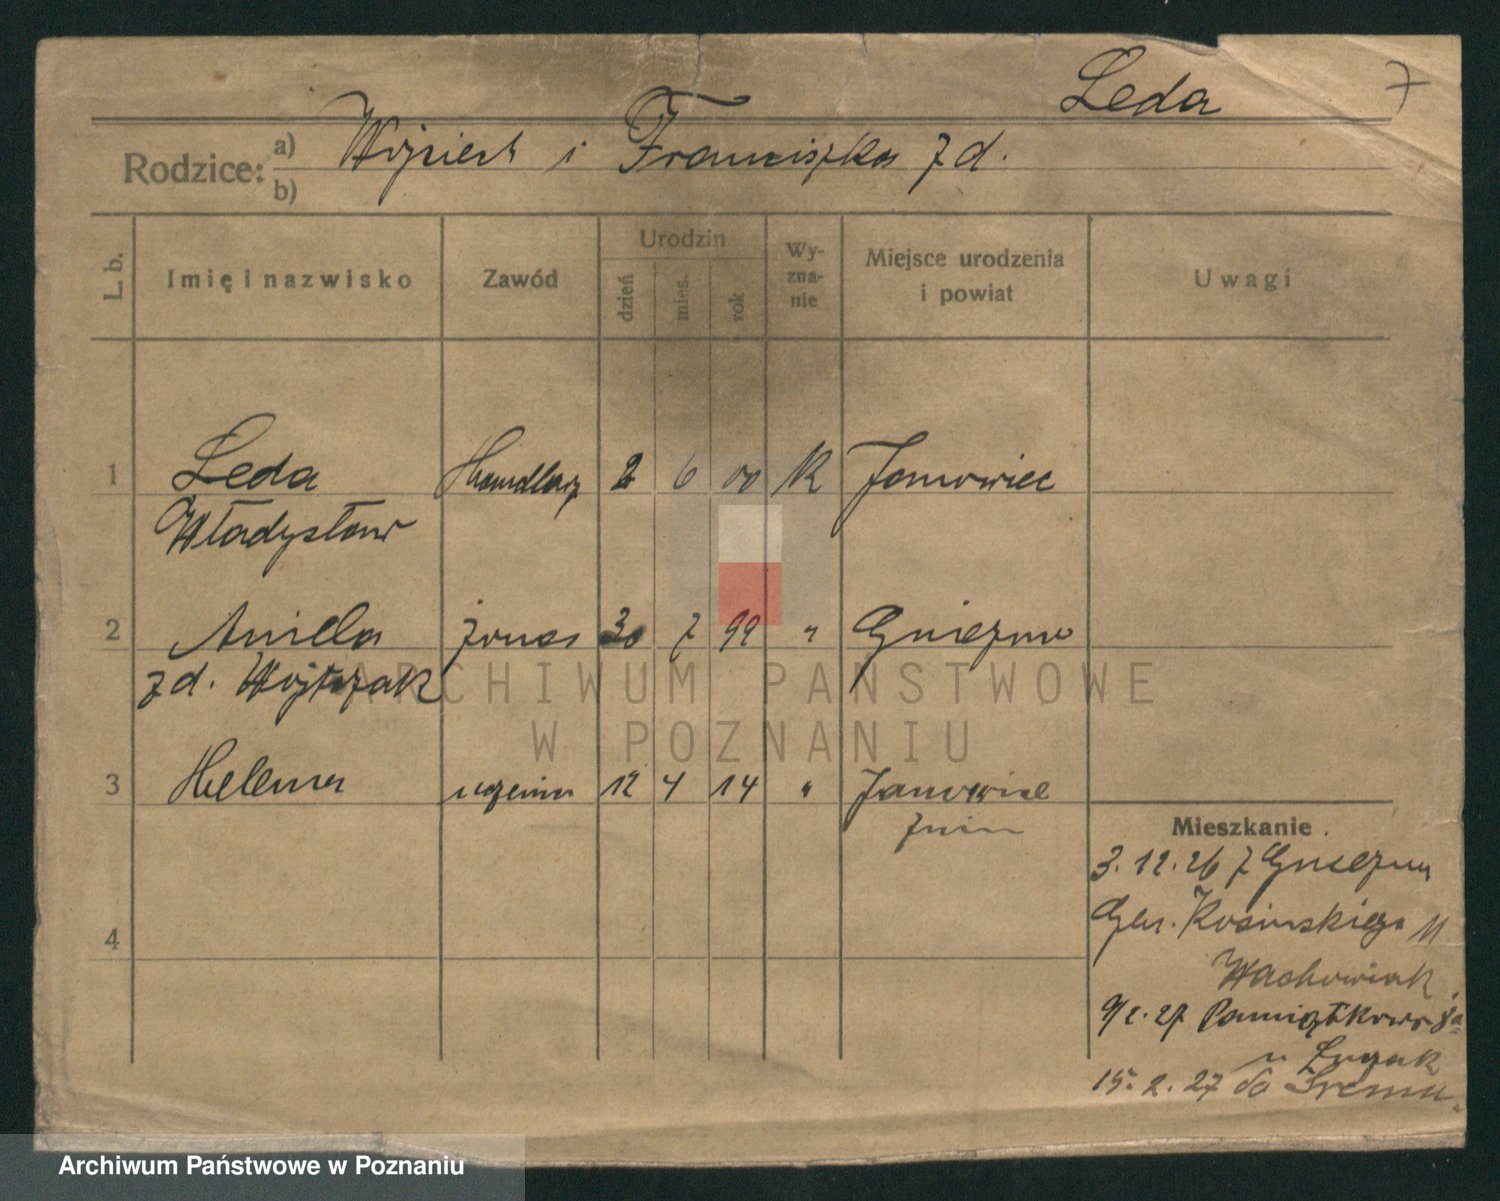 Leda 7
Rodzice: a) Wojciech i Franciszka z d.
b)
L. b. Imię i nazwisko Zawód Urodzin dzień mies. rok Wy-zna-nie Miejsce urodzenia i powiat Uwagi
1 Leda Handlarz 2 6 00 K Janowiec
Władysław
2 Aniela żona 30 7 99 " Gniezno
z d. Wojtczak
3 Helena 12 4 14 " Janowiec
Żnin
4
Mieszkanie
3.12.26 z Gniezna
Gen. Kosinskiego 11
Wachowiak
9/2.27 Pamiątkowa 8a
u
15.2.27 do Śremu
ARCHIWUM PAŃSTWOWE
W POZNANIU
Archiwum Państwowe w Poznaniu